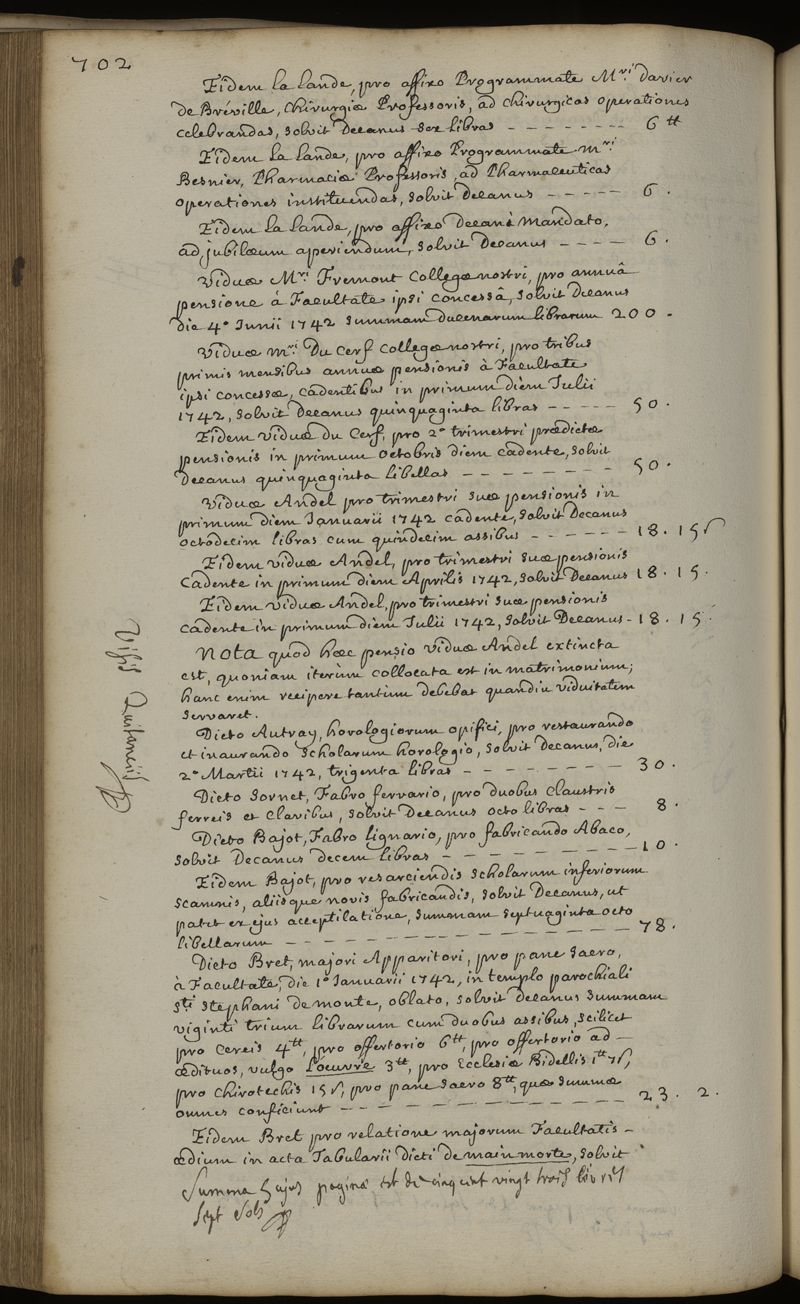 702
Eidem la lande, pro affixo Programmate Mri. davier
de Bréville, chirurgiæ Professoris, ad chirurgicas operationes
celebrandas, solvit Decanus sex libras -------- 6 tt
Eidem la lande, pro affixo Programmate mri.
Besnier, Pharmaciæ Professoris, ad Pharmaceuticas
operationes instituendas, solvit decanus ----- 6.
Eidem la lande, pro affixo decani mandato,
ad jubilæum aperiendum, solvit Decanus ---- 6.
viduæ Mri. Fremont collegæ nostri, pro annuâ
pensione à Facultate ipsi concessâ, solvit decanus
die 4a. Junii 1742 summam ducenarum librarum 200.
viduæ mri. Du cerf collegæ nostri, pro tribus
primis mensibus annuæ pensionis à Facultate
ipsi concessæ, cadentibus in primum diem Julii
1742, solvit decanus quinquaginta libras ----- 50.
Eidem viduæ du Cerf, pro 2o. trimestri prædictæ
pensionis in primum octobris diem cadente, solvit
Decanus quinquaginta libellas ------- 50.
viduæ Andel pro trimestri suæ pensionis in
primum diem Januarii 1742 cadente, solvit Decanus
octodecim libras cum quindecim assibus ------ 18. 15 s
Eidem viduæ Andel, pro trimestri suæ pensionis
cadente in primum diem Aprilis 1742, solvit Decanus 18. 15.
Eidem viduæ Andel, pro trimestri suæ pensionis
cadente in primum diem Julii 1742, solvit Decanus - 18. 15.
Nota quod hæc pensio viduæ Andel extincta
est, quoniam iterùm collocata est in matrimonium;
hanc enim recipere tantum debebat quandiu viduitatem
servaret.
Dicto Autray, horologiorum opifici, pro restaurando
et inaurando scholarum horologio, solvit decanus, die
2a. Martii 1742, triginta libras -------- 30.
Dicto Sornet, Fabro ferrario, pro duobus claustris
ferreis et clavibus, solvit decanus octo libras --- 8.
Dicto Bajot, Fabro lignario, pro fabricando Abaco,
solvit Decanus decem libras --------- 10.
Eidem Bajot, pro resarciendis scholarum inferiorum
scamnis, aliisque novis fabricandis, solvit Decanus, ut
patet ex ejus acceptilatione, summam septuaginta octo
libellarum ------------- 78.
Dicto Bret, majori Apparitori, pro pane sacro,
à Facultate, die 1a. Januarii 1742, in templo parochiali
sti. stephani de monte, oblato, solvit decanus summam
viginti trium librarum cum duobus assibus, scilicet
pro cereis 4tt, pro offertorio 6tt, pro offertorio ad -
ædituos, vulgo L'œuvre 3tt, pro Ecclesiæ Bidellis 1tt 7s,
pro chirotechis 15 s, pro pane sacro 8tt, quæ summæ
omnes conficiunt ----------- 23. 2.
Eidem Bret pro relatione majorum Facultatis -
ædium in acta Tabularii dicti de main morte, solvit
Summa hujus paginæ est de cinq cent vingt trois livres
sept sols
Visis Quitanciis